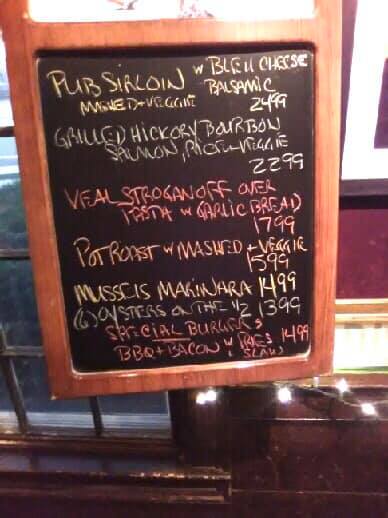 PUB SIRLOIN W BLEU CHEESE
BALSAMIC
MASHED + VEGGIE 2499
GRILLED HICKORY BOURBON
SALMON, RICE + VEGGIE
2299
VEAL STROGANOFF OVER
PASTA W GARLIC BREAD
1799
POT ROAST W MASHED + VEGGIE
1599
MUSSELS MARINARA 1499
(6) OYSTERS ON THE 1/2 1399
SPECIAL BURGER
BBQ + BACON W FRIES 1499
SLAW